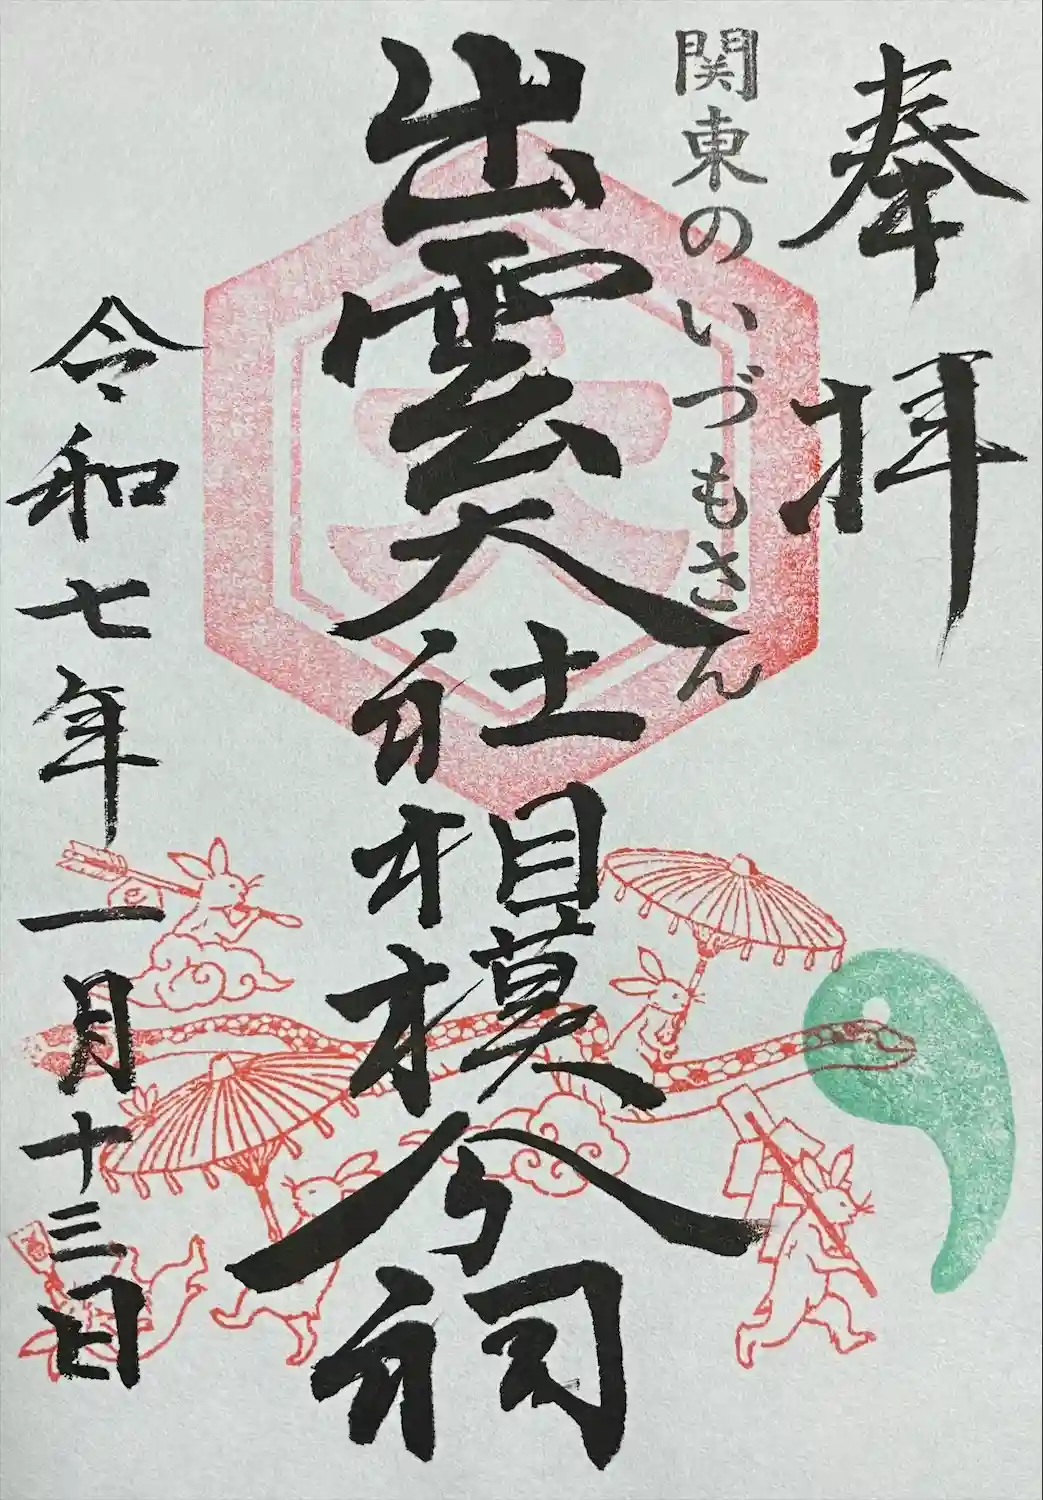 奉拝
関東のいづもさん
出雲大社相模分祠
令和七年一月十三日